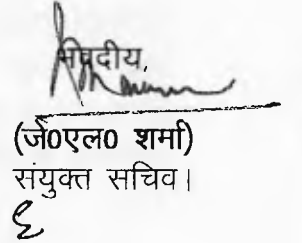 भवदीय,
(जे०एल० शर्मा)
संयुक्त सचिव।